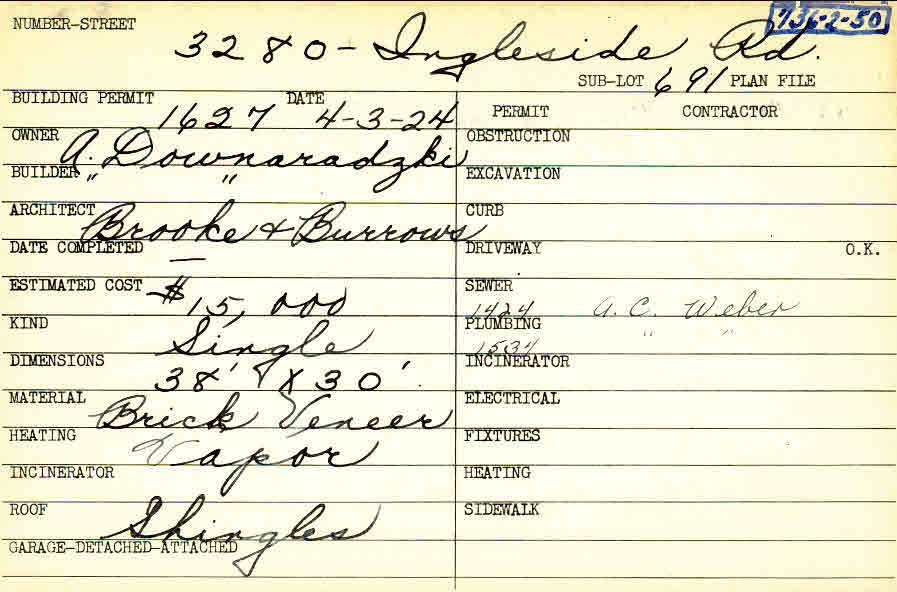 736-2-50
NUMBER-STREET
3280 - Ingleside Rd.
SUB-LOT 691 PLAN FILE
BUILDING PERMIT DATE PERMIT CONTRACTOR
1627 4-3-24
OWNER OBSTRUCTION
A. Downaradzki
BUILDER " " EXCAVATION
ARCHITECT CURB
Brooke & Burrows
DATE COMPLETED — DRIVEWAY O.K.
ESTIMATED COST $15,000 SEWER
1424 A. C. Weber
KIND PLUMBING
Single 1534 " "
DIMENSIONS INCINERATOR
38' X 30'
MATERIAL ELECTRICAL
Brick Veneer
HEATING FIXTURES
Vapor
INCINERATOR HEATING
ROOF SIDEWALK
Shingles
GARAGE-DETACHED-ATTACHED